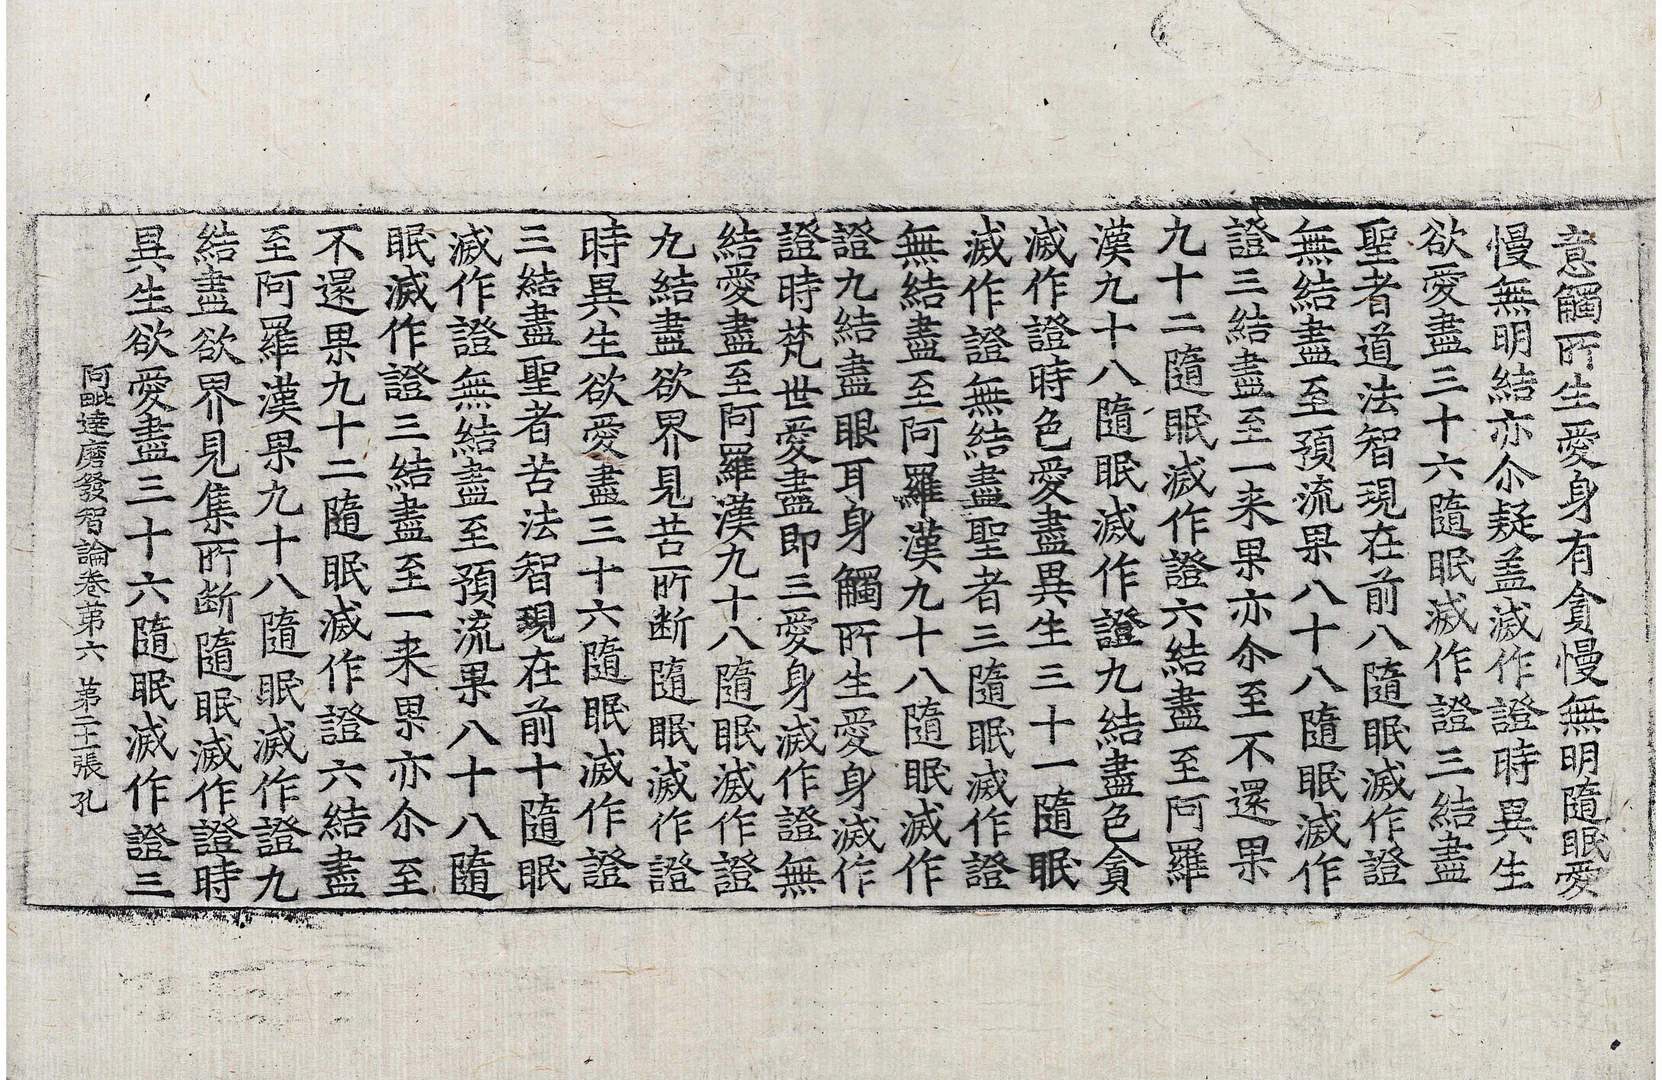 意觸所生愛身有貪慢無明隨眠愛
慢無明結亦尒疑盖滅作證時異生
欲愛盡三十六隨眠滅作證三結盡
聖者道法智現在前八隨眠滅作證
無結盡至預流果八十八隨眠滅作
證三結盡至一来果亦尒至不還果
九十二隨眠滅作證六結盡至阿羅
漢九十八隨眠滅作證九結盡色貪
滅作證時色愛盡異生三十一隨眠
滅作證無結盡聖者三隨眠滅作證
無結盡至阿羅漢九十八隨眠滅作
證九結盡眼耳身觸所生愛身滅作
證時梵世愛盡即三愛身滅作證無
結愛盡至阿羅漢九十八隨眠滅作證
九結盡欲界見苦所断隨眠滅作證
時異生欲愛盡三十六隨眠滅作證
三結盡聖者苦法智現在前十隨眠
滅作證無結盡至預流果八十八隨
眠滅作證三結盡至一来果亦尒至
不還果九十二隨眠滅作證六結盡
至阿羅漢果九十八隨眠滅作證九
結盡欲界見集所断隨眠滅作證時
異生欲愛盡三十六隨眠滅作證三
阿毗達磨發智論卷第六 第二十張 孔